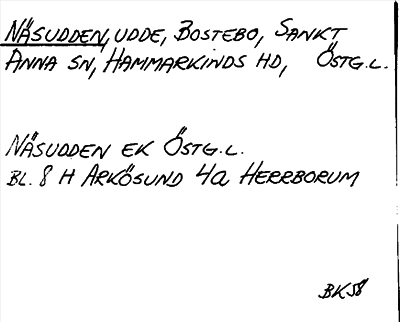 NÄSUDDEN, UDDE, BOSTEBO, SANKT
ANNA SN, HAMMARKINDS HD, ÖSTG.L.
NÄSUDDEN EK ÖSTG.L.
BL. 8 H ARKÖSUND 4a HERRBORUM
BK58